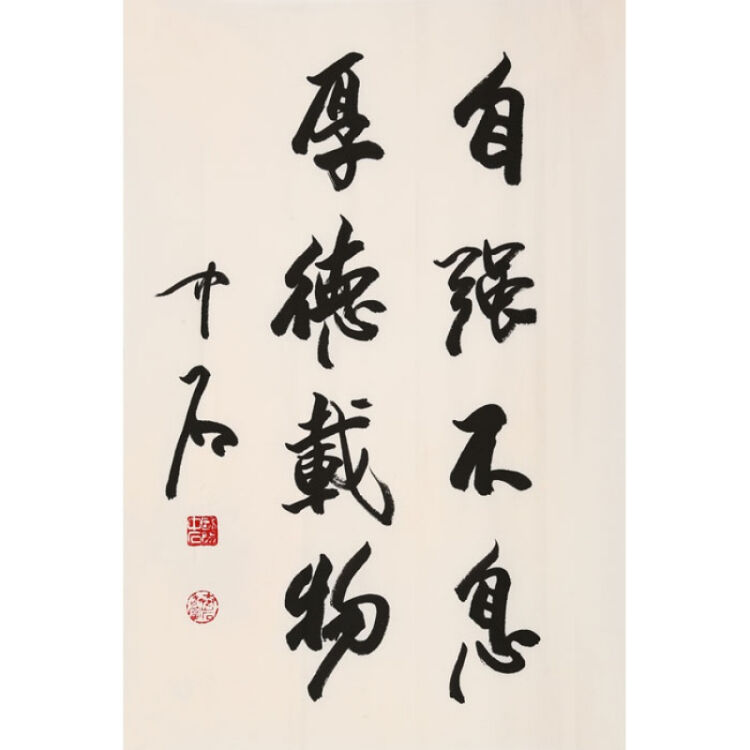 自强不息
厚德载物
中石